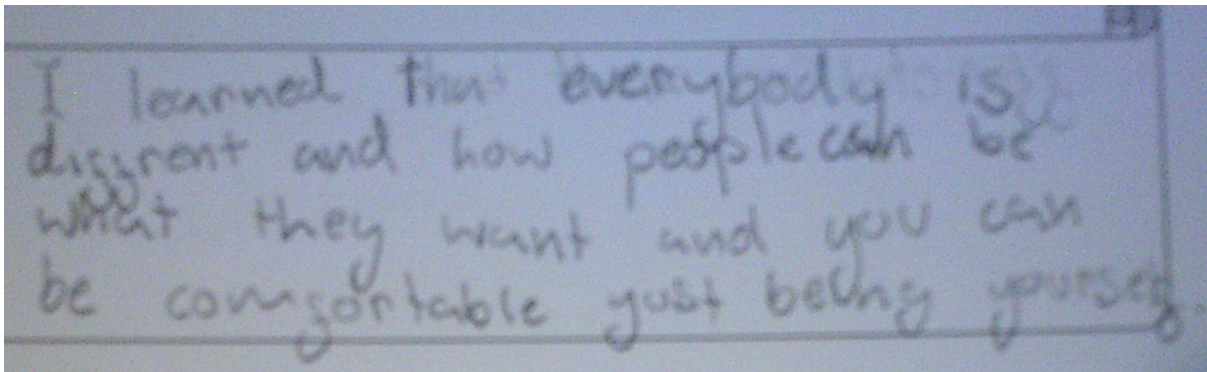 I learned that everybody is
diffrent and how people can be
what they want and you can
be comfortable yust being yourself